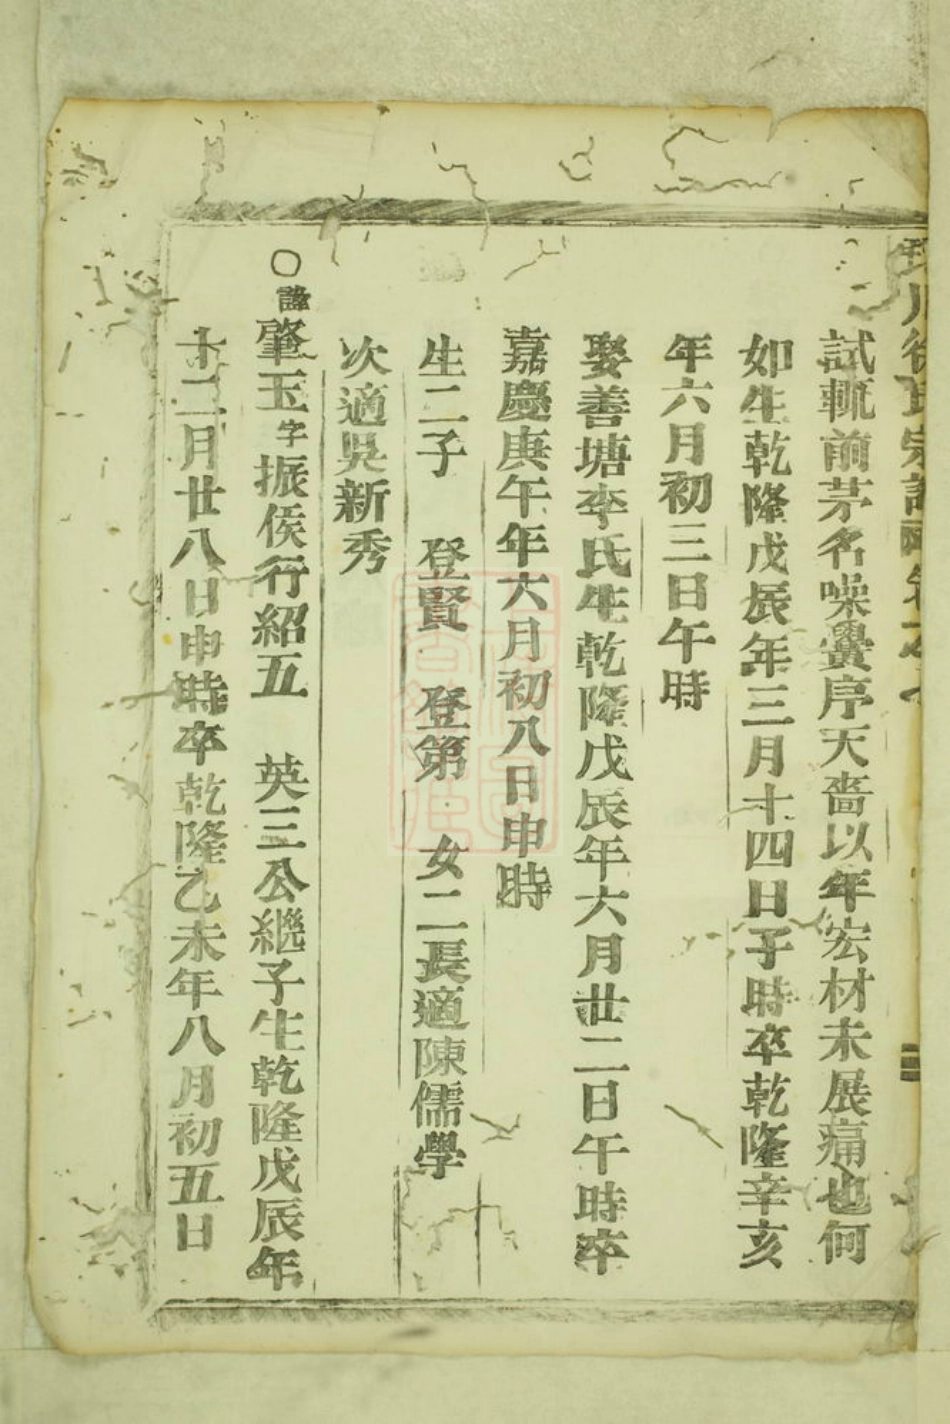 川徐氏宗譜
試輒前茅名噪黌序天嗇以年宏材未展痛也何
如生乾隆戊辰年三月十四日子時卒乾隆辛亥
年六月初三日午時
娶善塘李氏生乾隆戊辰年六月廿二日午時卒
嘉慶庚午年六月初八日申時
生二子 登賢 登第 女二長適陳儒學
次適吳新秀
○諱肇玉字振侯行紹五 英三公繼子生乾隆戊辰年
十二月廿八日申時卒乾隆乙未年八月初五日